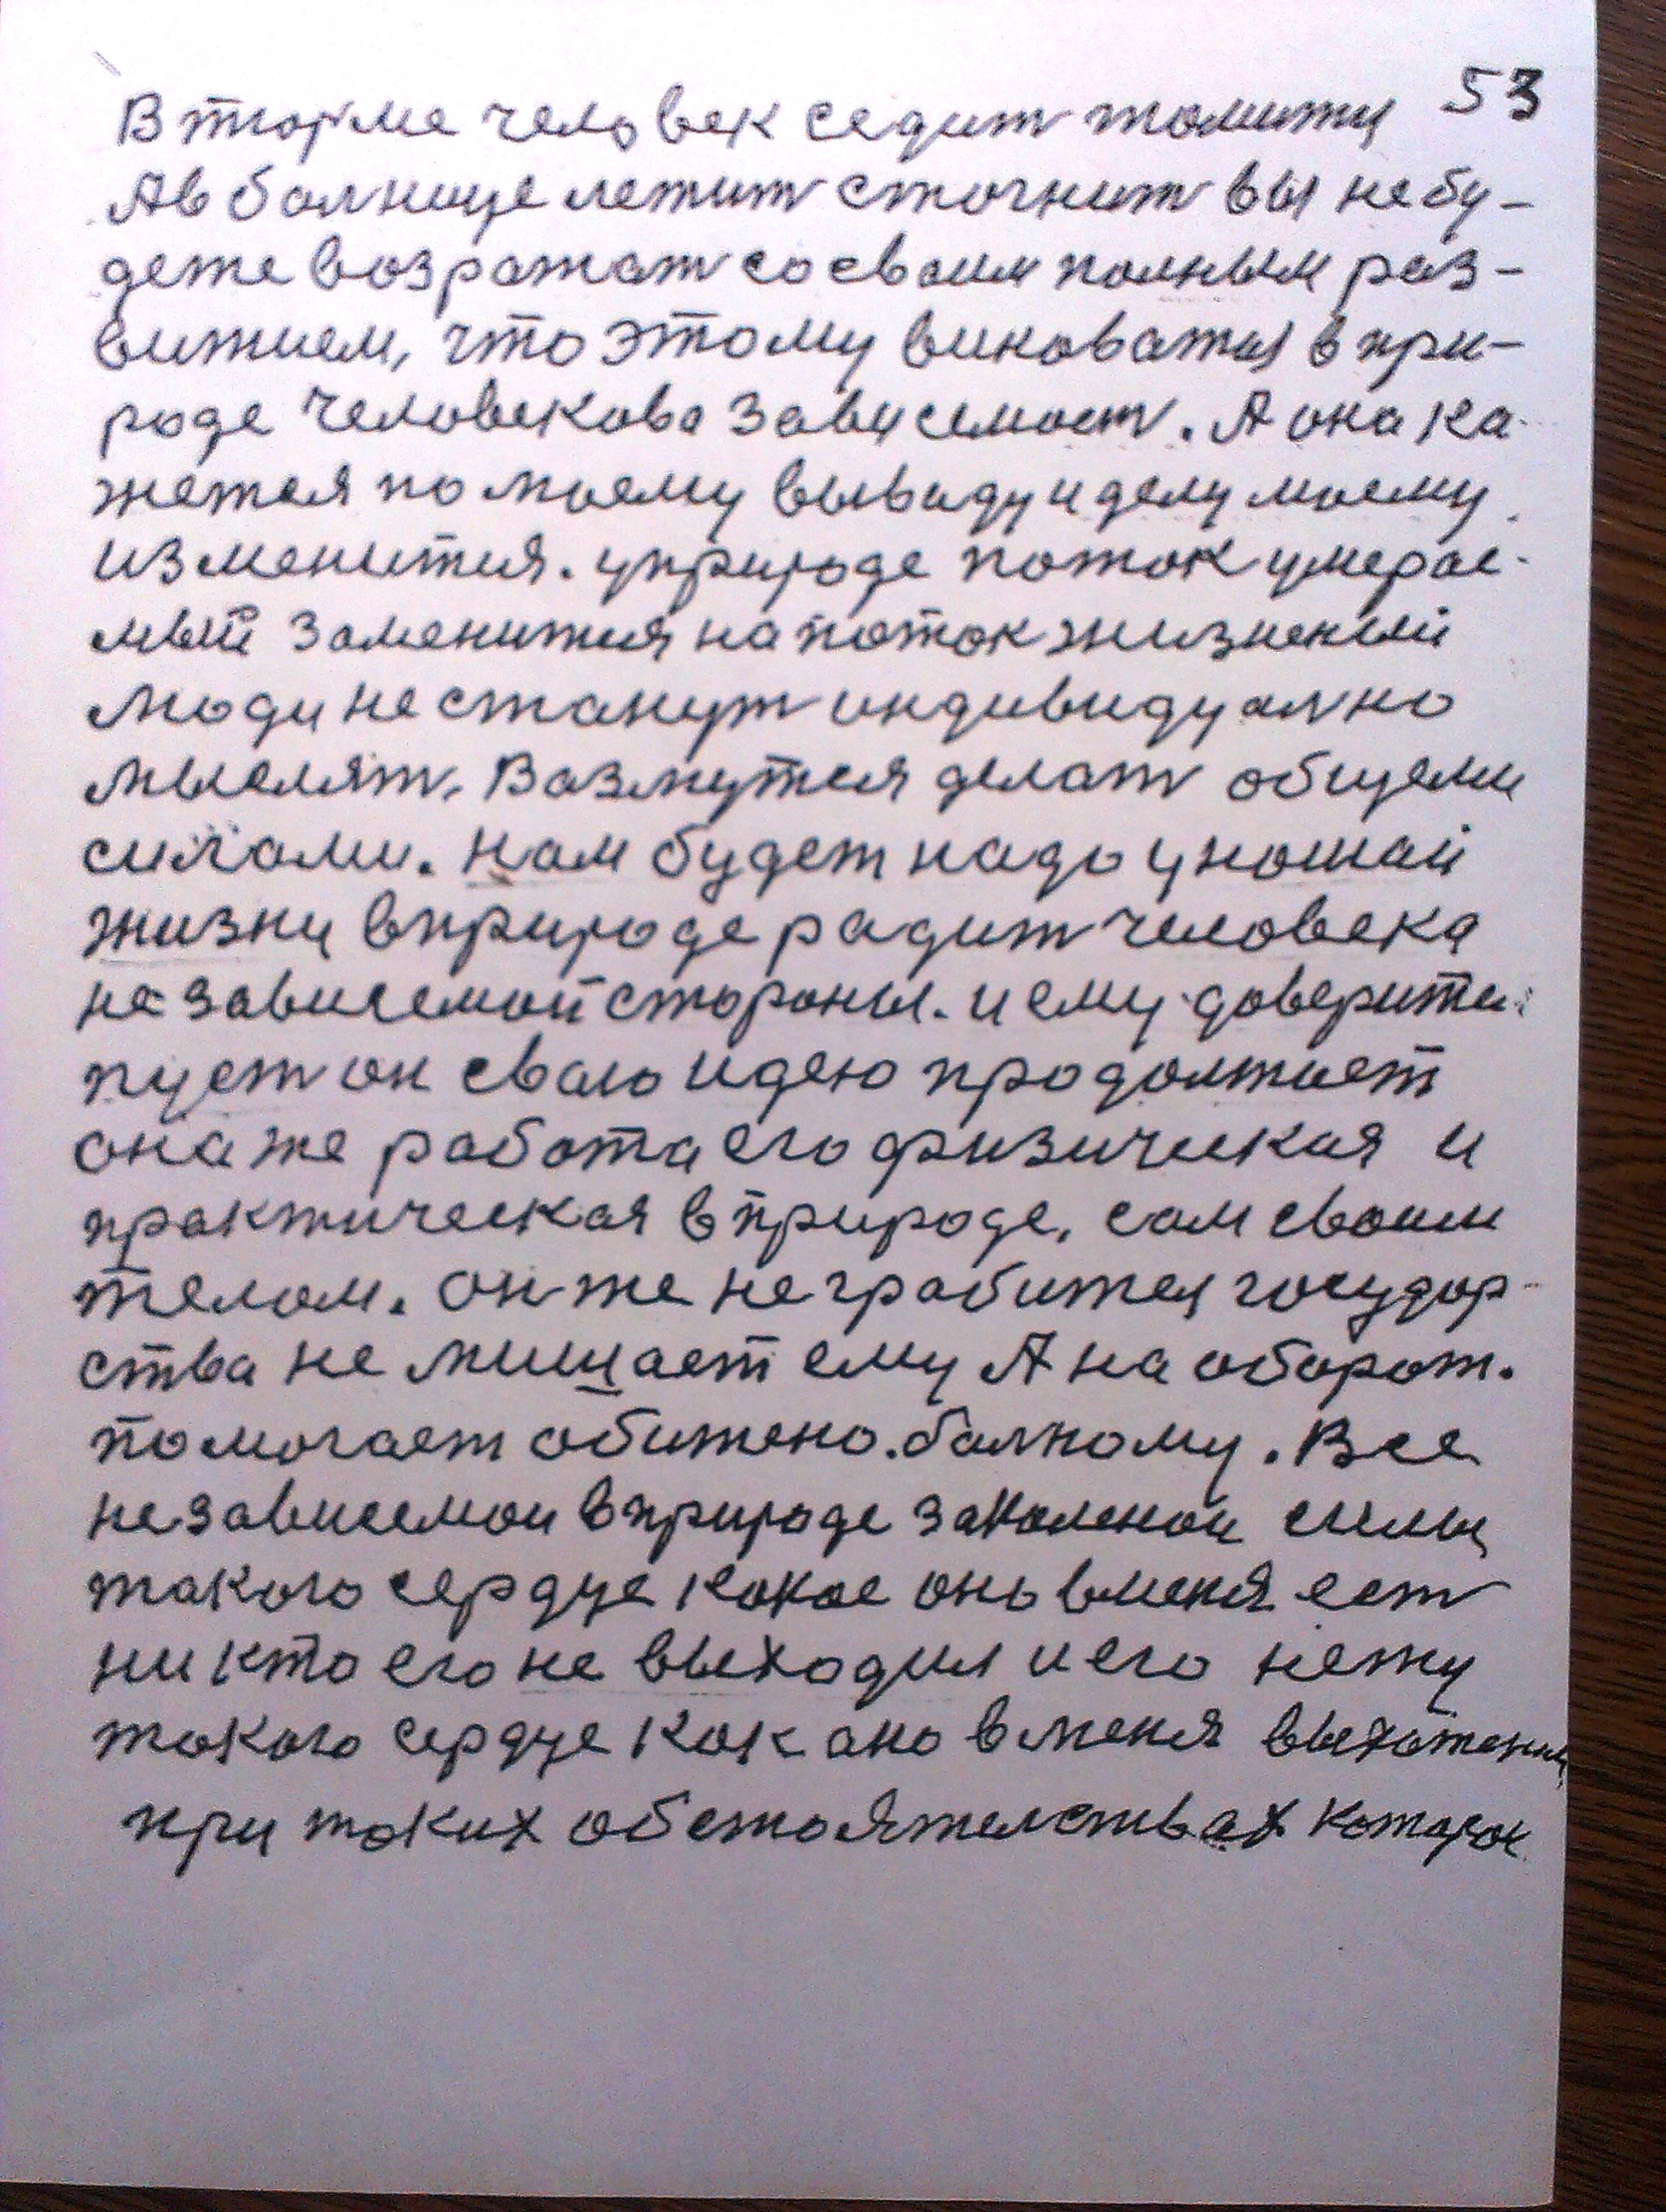 53
В тюрме человек седит томитця
Ав болнице лежит стогнит вы не бу-
дете возражат со своим полным раз-
витием, что этому виноватая в при-
роде человекова зависемост. А она ка-
жется по моему выводу и делу моему
изменится. уприроде поток умерае-
мый заменится на поток жизненый
Люди не станут индивидуално
мыслят. Возмутся делат общеми
силами. Нам будет надо у ношай
жизни вприроде радит человека
не зависемой стороны. и ему доверится
пуст он свою идею продолжает
она же работа его физическая и
практическая в природе, сам своим
телом. он же не грабител государ-
ства не мишает ему А на оборот.
помогает обижено.болному. Все
независемои вприроде законенои силы
такого сердце какое оно вменя ест
ни кто его не выходил и его нету
такого сердце как ано в меня выхожены
при таких обстоятелствах которое